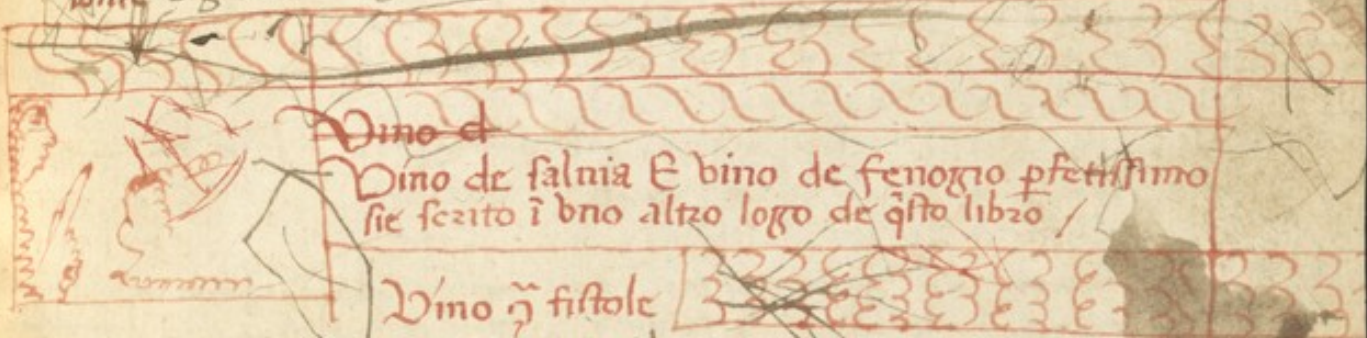 Vino d
Vino de saluia E vino de fenogio ꝑfetissimo
sie scrito ĩ vno altro logo de q̃sto libro /
Vino ꝯ̃ fistole